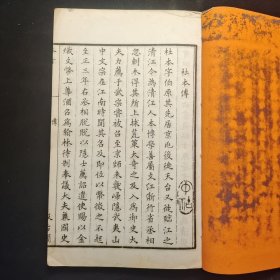 杜本傳
杜本字伯原其先居京兆後徙天台又徙臨江之
清江今為清江人本博學善屬文江浙行省丞相
忽剌朮得其所上救荒策大奇之及入為御史大
夫力薦于武宗嘗被召至京師未幾歸隱武夷山
中文宗在江南時聞其名及即位以幣徵之不起
至正三年右丞相脫脫以隱士薦詔遣使賜以金
織文幣上尊酒召為翰林待制奉議大夫兼國史